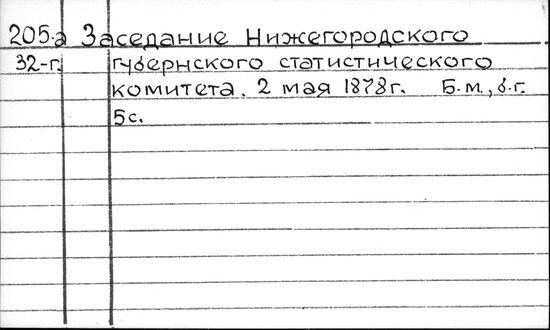 205.а Заседание Нижегородского
32-г. губернского статистического
комитета. 2 мая 1878г. Б.м., б.г.
5с.